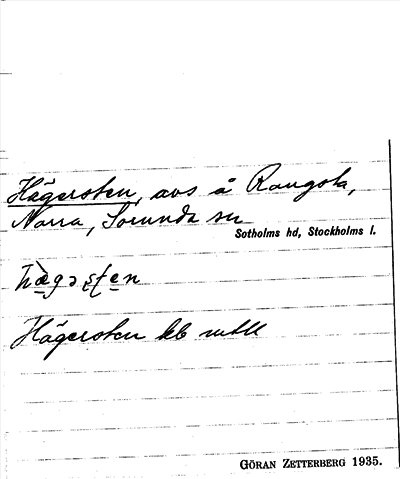 Hägersten, avs å Rangsta,
Norra, Sorunda sn
Sotholms hd, Stockholms l.
hä̀gəʂʈen
Hägersten
GÖRAN ZETTERBERG 1935.